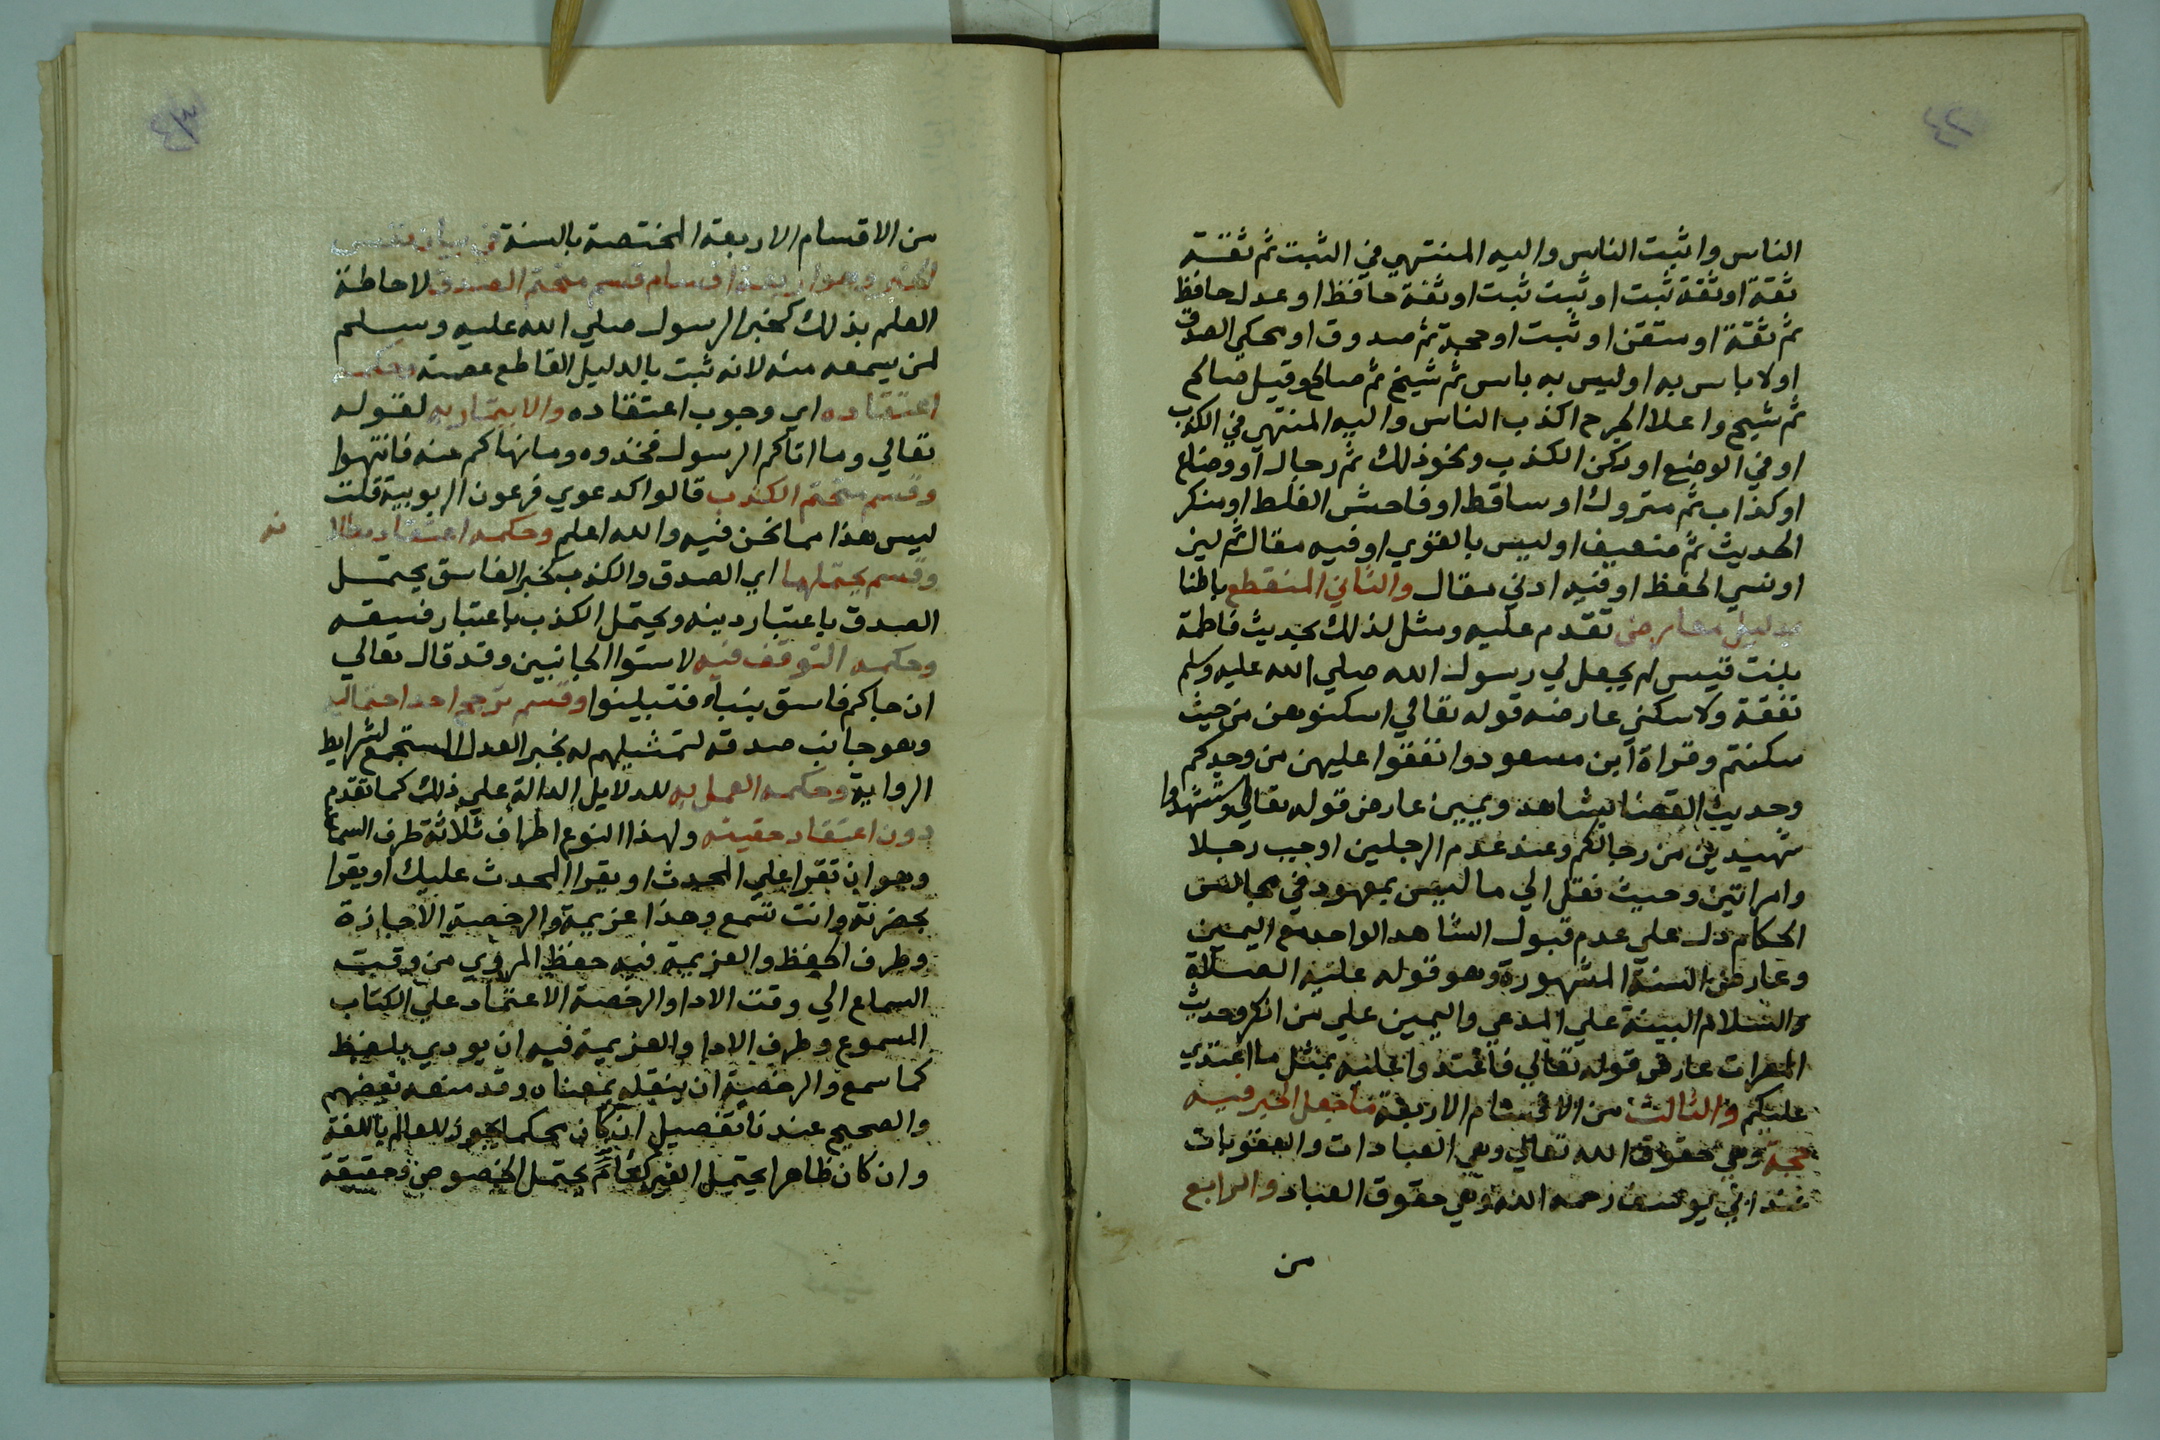 ٤٢
الناس واثبت الناس واليه المنتهي في الثبت ثم ثقة
ثقة او ثقة ثبت او ثبت ثبت او ثقة حافظ او عدل حافظ
ثم ثقة او متقن او ثبت او حجة ثم صدوق او محكي الصدق
او لا باس به او ليس به باس ثم شيخ ثم صالح وقيل صالح
ثم شيخ واعلا الجرح اكذب الناس واليه المنتهي في الكذب
او في الوضع او ركن الكذب ونحو ذلك ثم رجال او وضاع
او كذاب ثم متروك او ساقط او فاحش الغلط او منكر
الحديث ثم ضعيف او ليس بالقوي او فيه مقال ثم لين
او سي الحفظ او فيه ادني مقال والثاني المنقطع باطنا
بدليل معارض تقدم عليه ومثل لذلك بحديث فاطمة
بنت قيس لم يجعل لي رسول الله صلي الله عليه وسلم
نفقة ولا سكني عارضه قوله تعالي اسكنوهن من حيث
سكنتم وقراة ابن مسعود وانفقوا عليهن من وجدكم
وحديث القضا بشاهد ويمين عارض قوله تعالي واستشهدوا
شهيدين من رجالكم وعند عدم الرجلين اوجب رجلا
وامراتين وحيث نقل الي ما ليس بمعهود في مجالس
الحكام دل علي عدم قبول الشاهد الواحد مع اليمين
وعارض السنة المشهورة وهو قوله عليه الصلاة
والسلام البينة علي المدعي واليمين علي من انكر وحديث
المصرات عارض قوله تعالي فاعتدوا عليه بمثل ما اعتدي
عليكم والثالث من الاقسام الاربعة ما جعل الخبر فيه
حجة وهي حقوق الله تعالي وهي العبادات والعقوبات
عند ابي يوسف رحمه الله وهي حقوق العباد والرابع
من
٤٣
من الاقسام الاربعة المختصة بالسنة في بيان نفس
الخبر وهو اربعة اقسام قسم متحتم الصدق لاحاطة
العلم بذلك كخبر الرسول صلي الله عليه وسلم
لمن يسمعه منه لانه ثبت بالدليل القاطع عصمته وحكمه
اعتقاده اي وجوب اعتقاده والايتمار به لقوله
تعالي وما اتاكم الرسول فخذوه وما نهاكم عنه فانتهوا
وقسم متحتم الكذب قالوا كدعوي فرعون الربوبية قلت
ليس هذا مما نحن فيه والله اعلم وحكمه اعتقاد بطلا
نه
وقسم يحتملهما اي الصدق والكذب كخبر الفاسق يحتمل
الصدق باعتبار دينه ويحتمل الكذب باعتبار فسقه
وحكمه التوقف فيه لاستوا الجانبين وقد قال تعالي
ان جاكم فاسق بنباء فتبينوا وقسم ترجح احد احتماليه
وهو جانب صدقه لتمثيلهم له بخبر العدل المستجمع لشرايط
الرواية وحكمه العمل به للدلايل الدالة علي ذلك كما تقدم
دون اعتقاد حقيته ولهذا النوع اطراف ثلاثة طرف السماع
وهو ان تقرا علي المحدث او يقرا المحدث عليك او يقرا
بحضرته وانت تسمع وهذا عزيمة والرخصة الاجازة
وطرف الحفظ والعزيمة فيه حفظ المروي من وقت
السماع الي وقت الادا والرخصة الاعتماد علي الكتاب
المسموع وطرف الادا والعزيمة فيه ان يودي بلفظ
كما سمع والرخصة ان ينقله بمعناه وقد منعه بعضهم
والصحيح عندنا تفصيل ان كان محكما يجوز للعالم باللغة
وان كان ظاهرا يحتمل الغير كعام يحتمل الخصوص وحقيقة